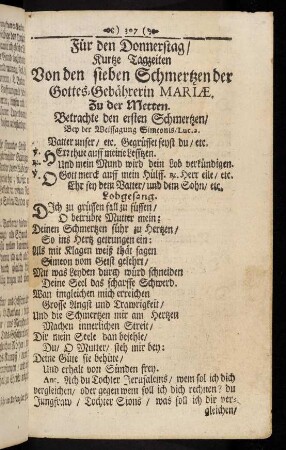 ☙( o ) 307 ( ☙
Für den Donnerstag/
Kurtze Tagzeiten
Von den sieben Schmertzen der
Gottes-Gebährerin MARIÆ.
Zu der Metten.
Betrachte den ersten Schmertzen/
Bey der Weissagung Simeonis/Luc.2.
Vatter unser/ etc. Gegrüsset seyst du/ etc.
℣. HErr thue auff meine Lefftzen.
℟. Und mein Mund wird dein Lob verkündigen.
℣. O Gott merck auff mein Hülff. ℟. Herr eile/ etc.
Ehr sey dem Vatter/ und dem Sohn/ etc.
Lobgesang.
DIch zu grüssen fall zu füssen/
O betrübte Mutter mein;
Deinen Schmertzen führ zu Hertzen/
So ins Hertz getrungen ein:
Als mit Klagen weiß thät sagen
Simeon vom Geist gelehrt/
Mit was Leyden durch würd schneiden
Deine Seel das scharffe Schwerd.
Wan imgleichen mich erreichen
Grosse Angst und Trawrigkeit/
Und die Schmertzen mir am Hertzen
Machen innerlichen Streit/
Dir mein Seele dan befehle/
Du/ O Mutter/ steh mir bey:
Deine Güte sie behüte/
Und erhalt von Sünden frey.
Ant. Ach du Tochter Jerusalems/ wem sol ich dich
vergleichen/ oder gegen wem soll ich dich rechnen? du
Jungfraw/ Tochter Sions/ was soll ich dir ver-
gleichen/